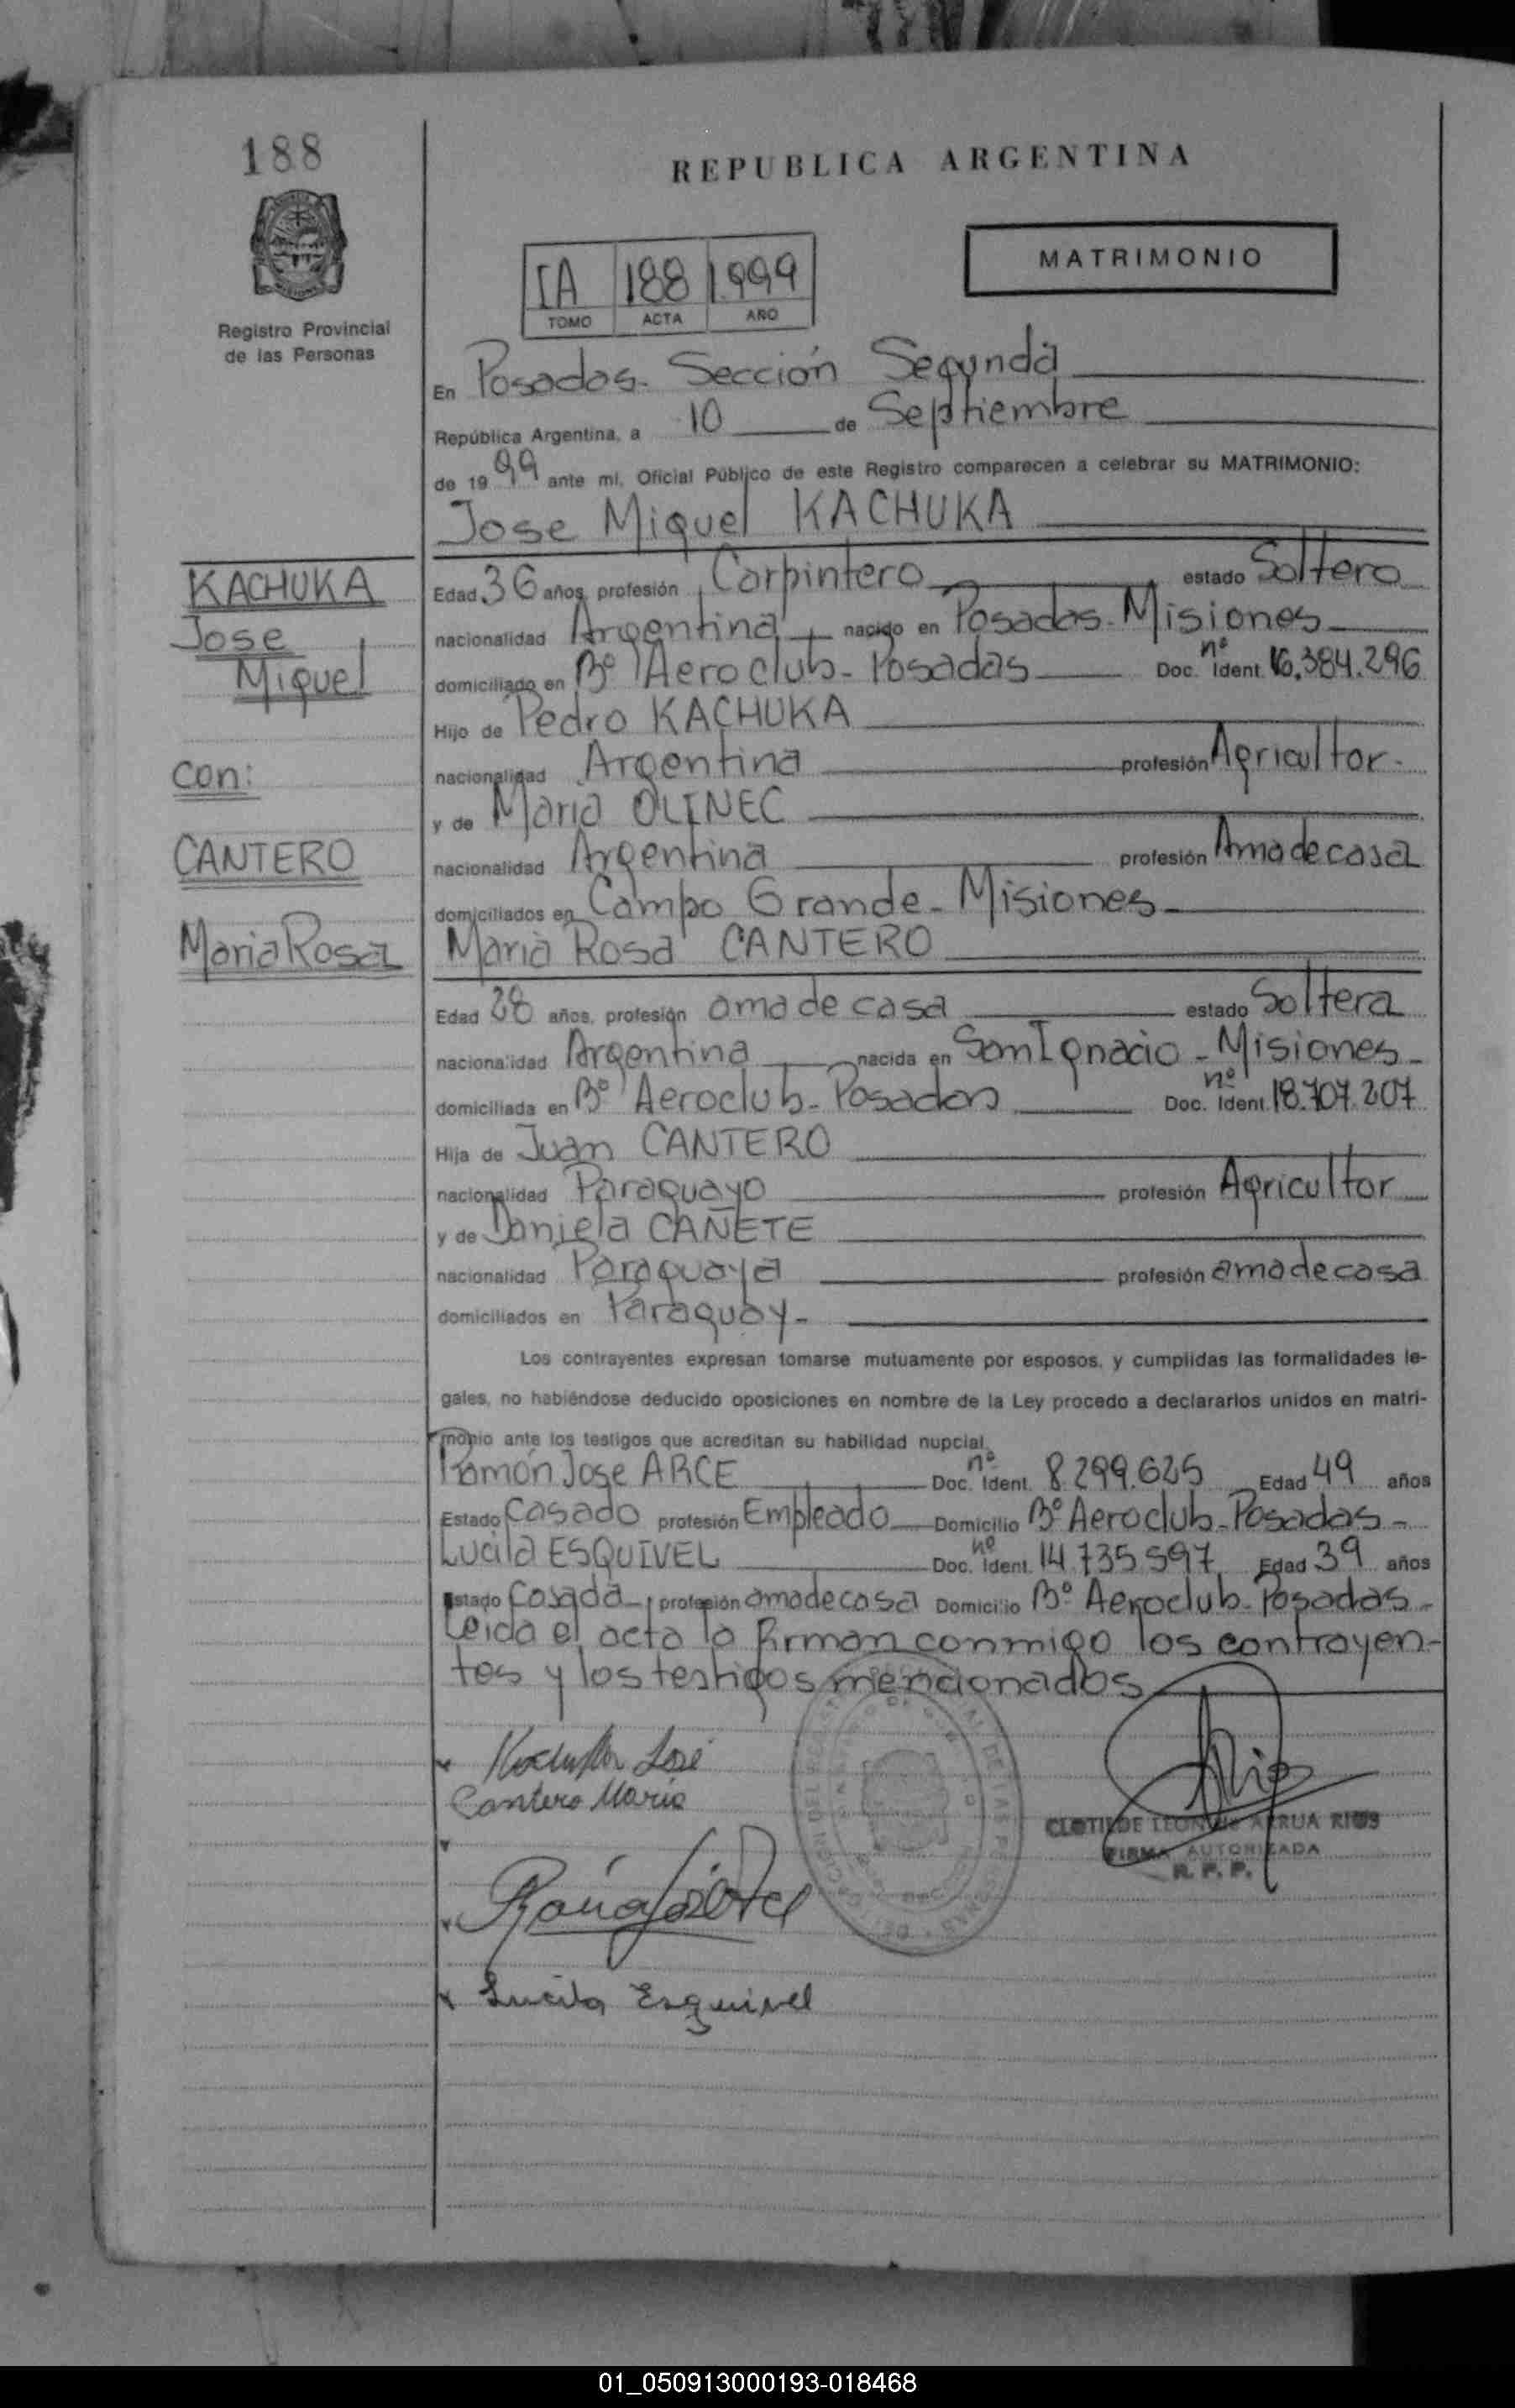 188
REPUBLICA ARGENTINA
MATRIMONIO
IA 188 1.999
TOMO ACTA AÑO
Registro Provincial
de las Personas
En Posadas. Sección Segunda
República Argentina, a 10 de Septiembre
de 1999 ante mi, Oficial Público de este Registro comparecen a celebrar su MATRIMONIO:
Jose Miguel KACHUKA
KACHUKA
Jose
Miguel
con:
CANTERO
Maria Rosa
Edad 36 años, profesión Carpintero estado Soltero
nacionalidad Argentina nacido en Posadas-Misiones
domiciliado en Bº Aeroclub-Posadas Doc. nº Ident. 16.384.296
Hijo de Pedro KACHUKA
nacionalidad Argentina profesión Agricultor-
y de Maria OLINEC
nacionalidad Argentina profesión Ama de casa
domiciliados en Campo Grande-Misiones
Maria Rosa CANTERO
Edad 28 años, profesión ama de casa estado Soltera
nacionalidad Argentina nacida en San Ignacio-Misiones-
domiciliada en Bº Aeroclub-Posadas Doc. nº Ident. 18.707.207
Hija de Juan CANTERO
nacionalidad Paraguayo profesión Agricultor
y de Daniela CAÑETE
nacionalidad Paraguaya profesión ama de casa
domiciliados en Paraguay-
Los contrayentes expresan tomarse mutuamente por esposos, y cumplidas las formalidades le-
gales, no habiéndose deducido oposiciones en nombre de la Ley procedo a declararlos unidos en matri-
monio ante los testigos que acreditan su habilidad nupcial.
Ramón Jose ARCE Doc. nº Ident. 8.299.625 Edad 49 años
Estado Casado profesión Empleado Domicilio Bº Aeroclub-Posadas-
Lucila ESQUIVEL Doc. nº Ident. 14.735.597 Edad 39 años
Estado Casada profesión ama de casa Domicilio Bº Aeroclub-Posadas-
Leida el acta la firman conmigo los contrayen-
tes y los testigos mencionados
Kachuka José
Cantero Maria
CLOTILDE ARRUA RIOS
FIRMA AUTORIZADA
R. P. P.
Lucila Esquivel
01_050913000193-018468